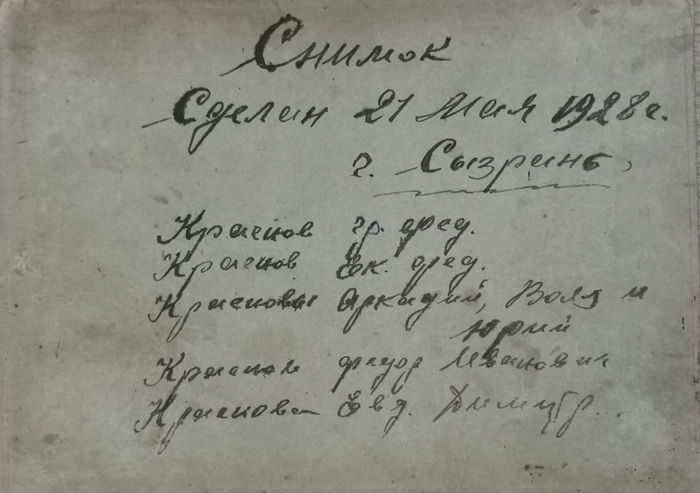 Снимок
Сделан 21 Мая 1928 г.
г. Сызрань
Краснов гр. фед.
Краснов Ек. фед.
Красновы Аркадий, Воля и
Юрий
Краснов федор Иванович
Краснова Евд. Димитр.